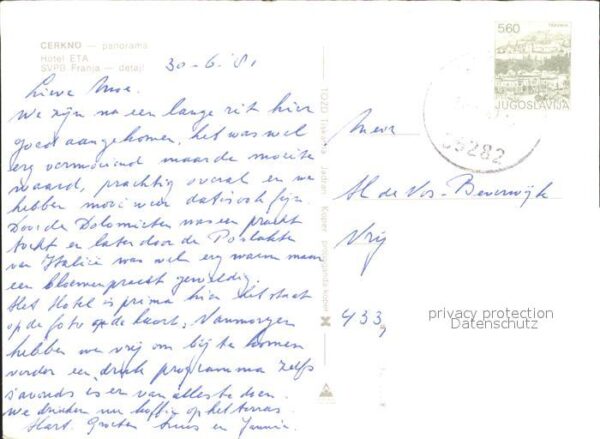 CERKNO — panorama
Hotel ETA
SVPB Franja — detajl
30-6-81
Lieve
We zijn na een lange rit hier
goed aangekomen, het was wel
erg vermoeiend maar de moeite
waard, prachtig overal en we
hebben mooi weer dat is ook fijn.
Door de Dolomieten was een pracht
tocht en later door de Povlakte
van Italië was wel erg warm maar
een bloemenpracht geweldig.
Het Hotel is prima hier het staat
op de foto op de kaart, Vanmorgen
hebben we vrij om bij te komen
verder een druk programma zelfs
s'avonds is er van alles te doen.
we drinken nu koffie op het terras
Hart. Groeten Truus en Jannie
TOZD Tiskarna Jadran Koper propaganda koper
560
JUGOSLAVIJA
65282
Mevr
de Vos-Beverwijk
Vrij
433
privacy protection
Datenschutz